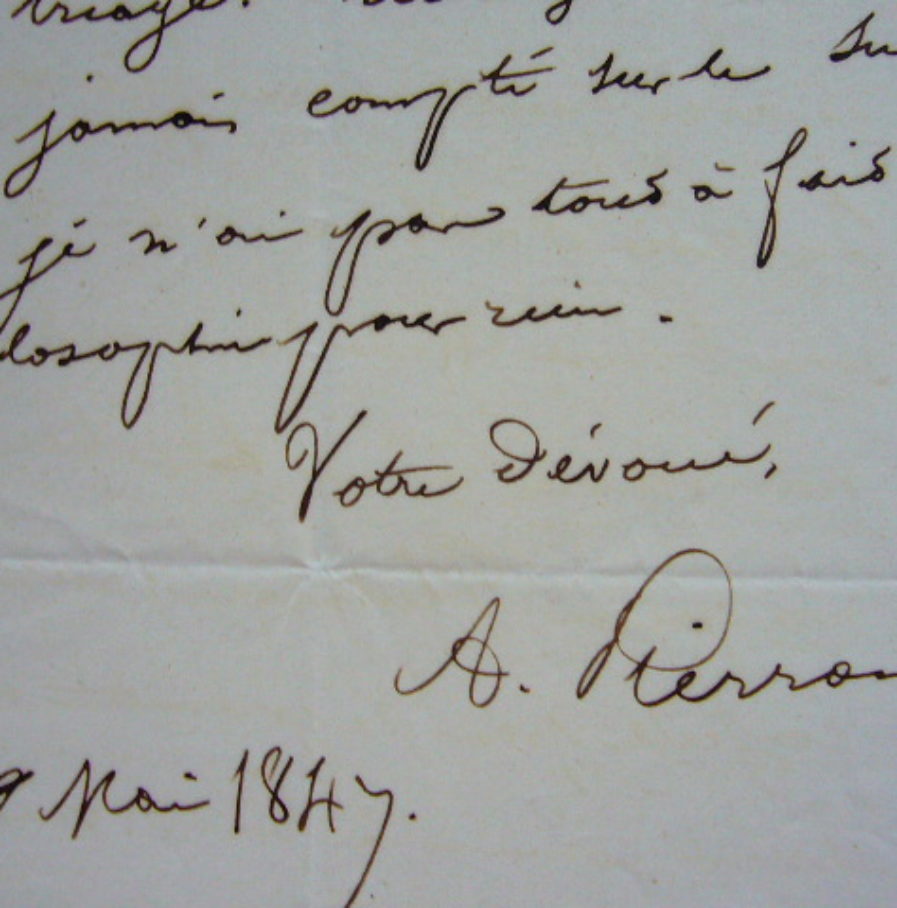 triage.
jamais compté sur le su
je n'ai pas tout à fait
losophie pour rien.
Votre dévoué,
A. Pierron
9 Mai 1847.